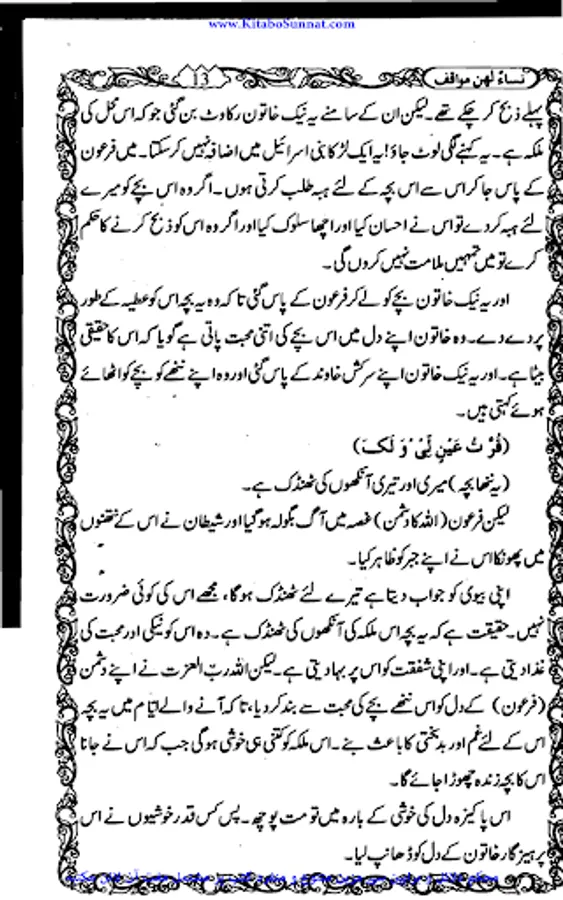 www.KitaboSunnat.com
نساء لهن مواقف
13
پہلے ذبح کر چکے تھے۔ لیکن ان کے سامنے یہ نیک خاتون رکاوٹ بن گئی جو کہ اس محل کی
ملکہ ہے۔ یہ کہنے لگی لوٹ جاؤ! یہ ایک لڑکا بنی اسرائیل میں اضافہ نہیں کر سکتا۔ میں فرعون
کے پاس جا کر اس سے اس بچہ کے لئے ہبہ طلب کرتی ہوں۔ اگر وہ اس بچے کو میرے
لئے ہبہ کردے تو اس نے احسان کیا اور اچھا سلوک کیا اور اگر وہ اس کو ذبح کرنے کا حکم
کرے تو میں تمہیں ملامت نہیں کروں گی۔
اور یہ نیک خاتون بچے کو لے کر فرعون کے پاس گئی تا کہ وہ یہ بچہ اس کو عطیہ کے طور
پر دے دے۔ وہ خاتون اپنے دل میں اس بچے کی اتنی محبت پاتی ہے گویا کہ اس کا حقیقی
بیٹا ہے۔ اور یہ نیک خاتون اپنے سرکش خاوند کے پاس گئی اور وہ اپنے ننھے کو بچے کو اٹھائے
ہوئے کہتی ہیں۔
(قُرَّتُ عَیْنٍ لِّیْ وَ لَکَ)
(یہ ننھا بچہ) میری اور تیری آنکھوں کی ٹھنڈک ہے۔
لیکن فرعون (اللہ کا دشمن) غصہ میں آگ بگولہ ہو گیا اور شیطان نے اس کے نتھنوں
میں پھونکا اس نے اپنے جبر کو ظاہر کیا۔
اپنی بیوی کو جواب دیتا ہے تیرے لئے ٹھنڈک ہوگا، مجھے اس کی کوئی ضرورت
نہیں۔ حقیقت ہے کہ یہ بچہ اس ملکہ کی آنکھوں کی ٹھنڈک ہے۔ وہ اس کو نیکی اور محبت کی
غذا دیتی ہے۔ اور اپنی شفقت کو اس پر بہا دیتی ہے۔ لیکن اللہ ربّ العزت نے اپنے دشمن
(فرعون) کے دل کو اس ننھے بچے کی محبت سے بند کر دیا، تا کہ آنے والے ایّام میں یہ بچہ
اس کے لئے غم اور بدبختی کا باعث بنے۔ اس ملکہ کو کتنی ہی خوشی ہوگی جب کہ اس نے جانا
اس کا بچہ زندہ چھوڑا جائے گا۔
اس پاکیزہ دل کی خوشی کے بارہ میں تو مت پوچھ۔ پس کس قدر خوشیوں نے اس
پرہیز گار خاتون کے دل کو ڈھانپ لیا۔